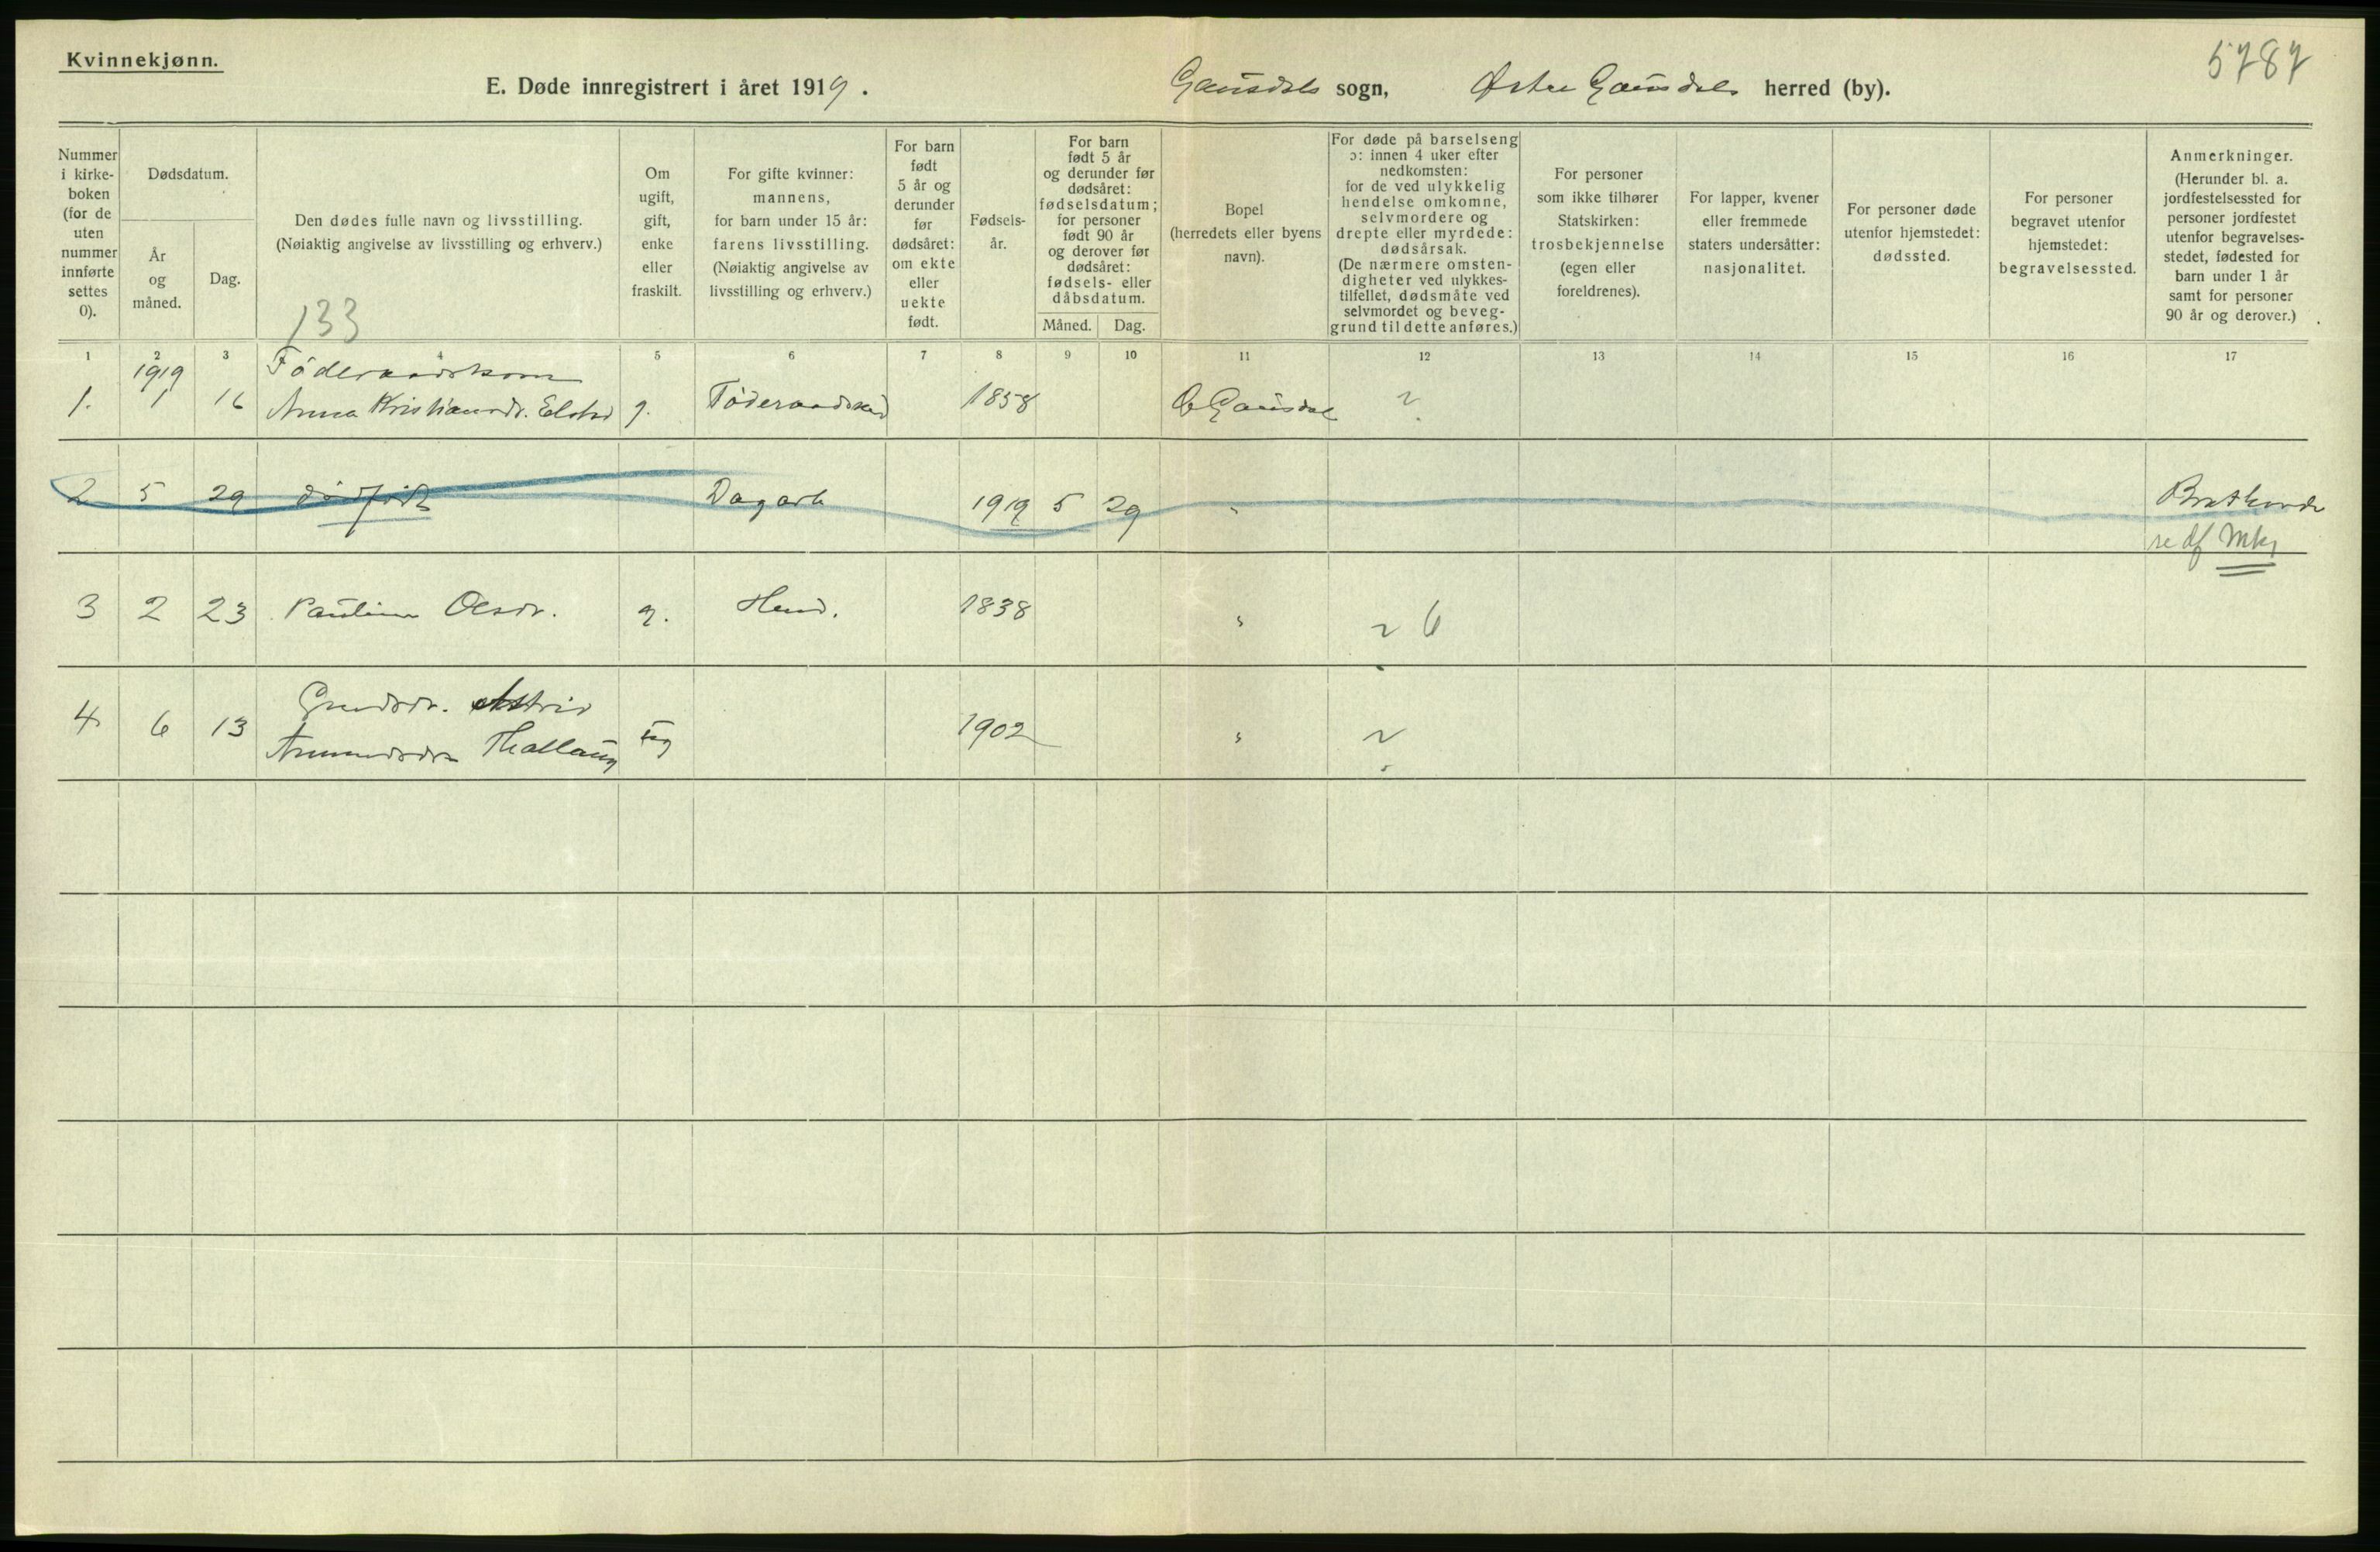 Kvinnekjønn.
5787
E. Døde innregistrert i året 1919. Gausdals sogn, Østre Gausdals herred (by).
Nummer i kirke-boken (for de uten nummer innførte settes 0).
Dødsdatum.
År og måned.
Dag.
Den dødes fulle navn og livsstilling.
(Nøiaktig angivelse av livsstilling og erhverv.)
133
Om ugift, gift, enke eller fraskilt.
For gifte kvinner: mannens, for barn under 15 år: farens livsstilling. (Nøiaktig angivelse av livsstilling og erhverv.)
For barn født 5 år og derunder før dødsåret: om ekte eller uekte født.
Fødsels-år.
For barn født 5 år og derunder før dødsåret: fødselsdatum; for personer født 90 år og derover før dødsåret: fødsels- eller dåbsdatum.
Måned. Dag.
Bopel (herredets eller byens navn).
For døde på barselseng ɔ: innen 4 uker efter nedkomsten: for de ved ulykkelig hendelse omkomne, selvmordere og drepte eller myrdede: dødsårsak. (De nærmere omsten-digheter ved ulykkes-tilfellet, dødsmåte ved selvmordet og beveg-grund til dette anføres.)
For personer som ikke tilhører Statskirken: trosbekjennelse (egen eller foreldrenes).
For lapper, kvener eller fremmede staters undersåtter: nasjonalitet.
For personer døde utenfor hjemstedet: dødssted.
For personer begravet utenfor hjemstedet: begravelsessted.
Anmerkninger. (Herunder bl. a. jordfestelsessted for personer jordfestet utenfor begravelses-stedet, fødested for barn under 1 år samt for personer 90 år og derover.)
1 2 3 4 5 6 7 8 9 10 11 12 13 14 15 16 17
1919 Föderaadskone
1. 1 16 Anna Kristiansdr. Elstad g. Föderaadsmand 1858 Ø Gausdal ?
2 5 29 dødfødt Dagarb 1919 5 29 "
se df Mkj
3 2 23 Pauline Olsdr. g. Husm. 1838 " ? 6
4 6 13 Gaardsdr. Astrid
Amundsdr. Thallaug ug 1902 " ?